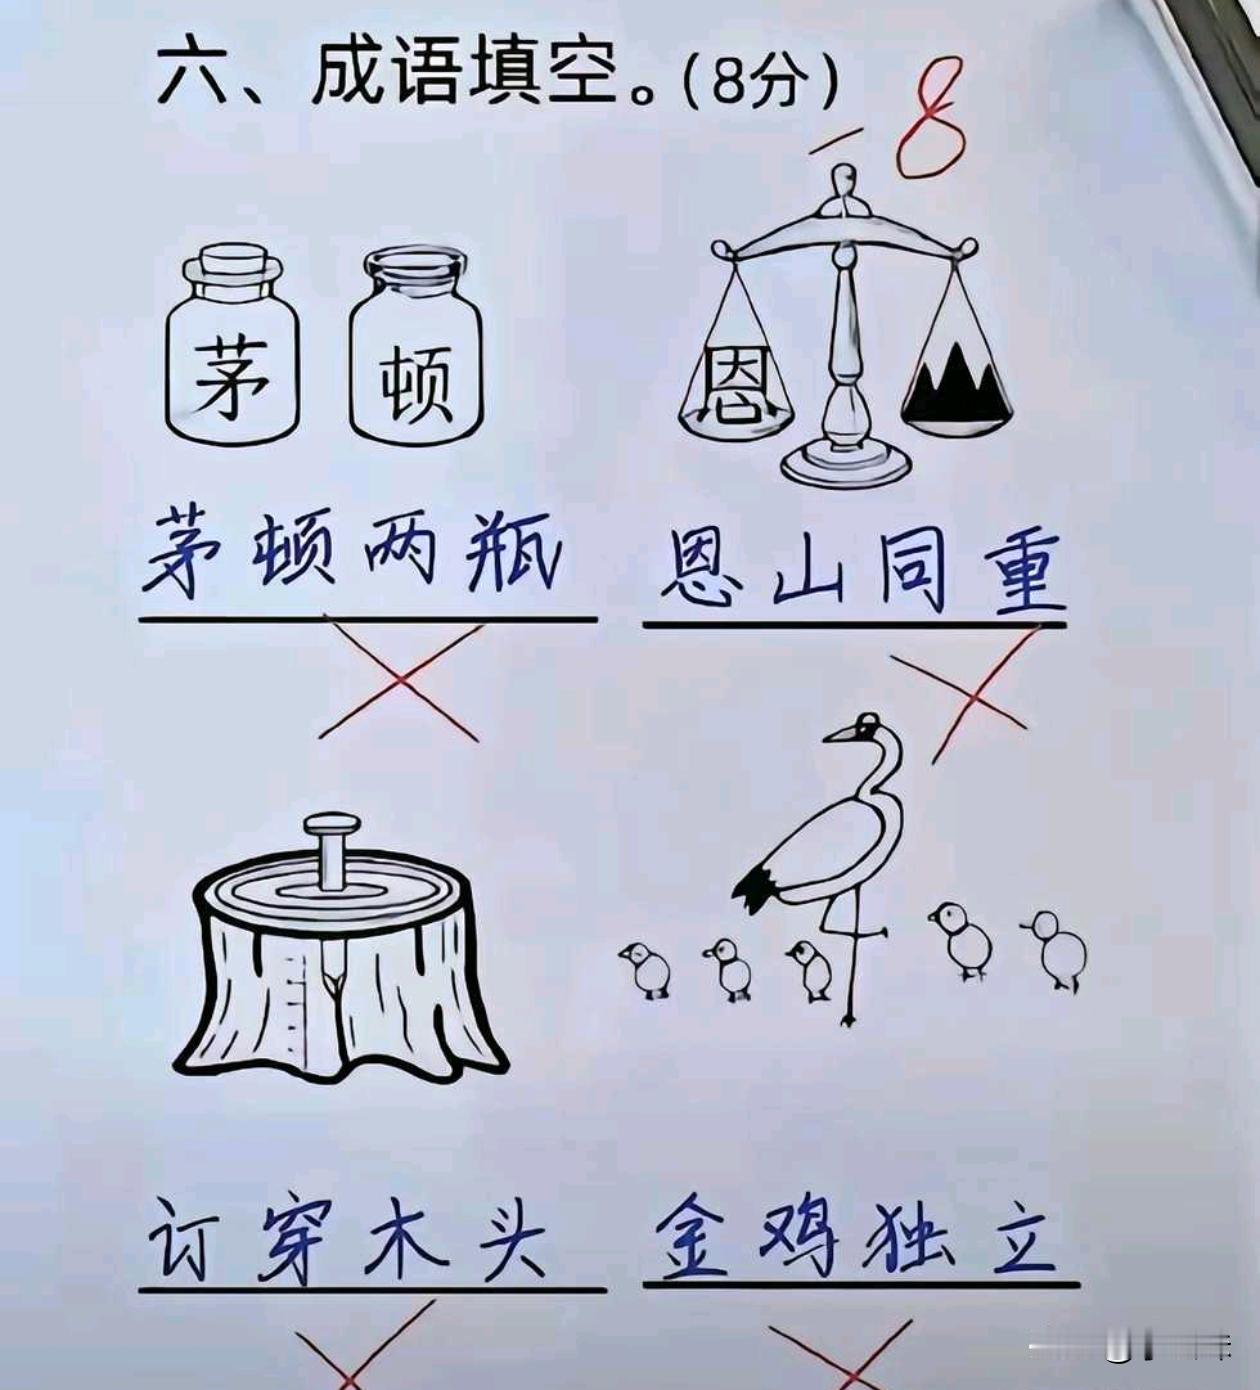 六、成语填空。(8分)
-8
茅 顿
恩
茅顿两瓶 恩山同重
订穿木头 金鸡独立